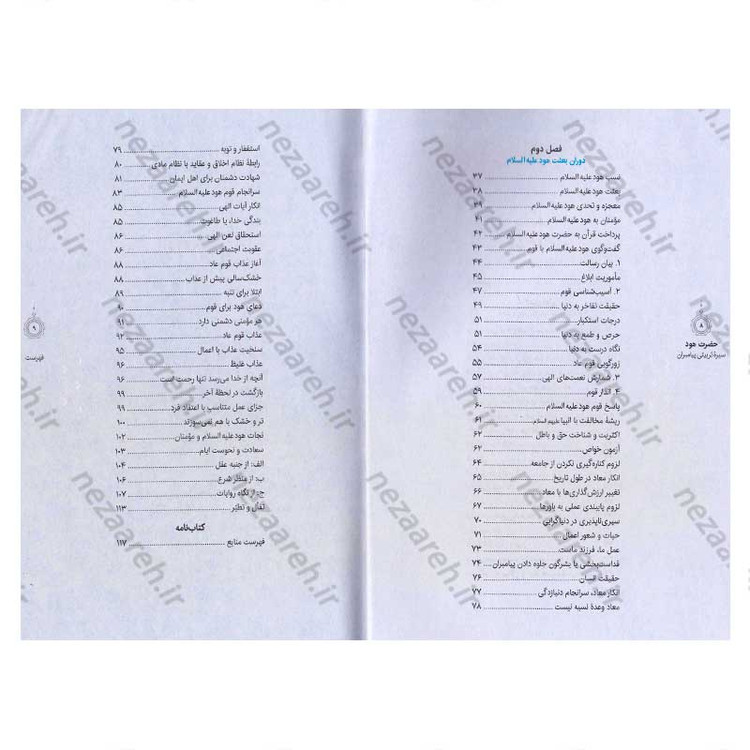 فصل دوم
دوران بعثت هود علیه‌السلام
نسب هود علیه‌السلام ۳۷
بعثت هود علیه‌السلام ۳۸
معجزه و تحدی هود علیه‌السلام ۳۹
مؤمنان به هود علیه‌السلام ۴۱
پرداخت قرآن به حضرت هود علیه‌السلام ۴۲
گفت‌وگوی هود علیه‌السلام با قوم ۴۳
۱. بیان رسالت ۴۴
مأموریت ابلاغ ۴۵
۲. آسیب‌شناسی قوم ۴۷
حقیقت تفاخر به دنیا ۴۹
درجات استکبار ۵۱
حرص و طمع به دنیا ۵۱
نگاه درست به دنیا ۵۴
زورگویی قوم عاد ۵۵
۳. شمارش نعمت‌های الهی ۵۷
۴. انذار قوم ۵۹
پاسخ قوم هود علیه‌السلام ۶۰
ریشهٔ مخالفت با انبیا علیهم السلام ۶۱
اکثریت و شناخت حق و باطل ۶۲
آزمون خواص ۶۲
لزوم کناره‌گیری نکردن از جامعه ۶۴
انکار معاد در طول تاریخ ۶۵
تغییر ارزش‌گذاری‌ها با معاد ۶۶
لزوم پایبندی عملی به باورها ۶۷
سیری‌ناپذیری در دنیاگرایی ۷۰
حیات و شعور اعمال ۷۱
عمل ما، فرزند ماست ۷۳
قداست‌بخشی یا بشرگون جلوه دادن پیامبران ۷۴
حقیقت انسان ۷۶
انکار معاد، سرانجام دنیازدگی ۷۷
معاد وعدهٔ نسیه نیست ۷۸
۸
حضرت هود
سیرهٔ تربیتی پیامبران
استغفار و توبه ۷۹
رابطهٔ نظام اخلاق و عقاید با نظام مادی ۸۰
شهادت دشمنان برای اهل ایمان ۸۱
سرانجام قوم هود علیه‌السلام ۸۳
انکار آیات الهی ۸۵
بندگی خدا، یا طاغوت ۸۵
استحقاق لعن الهی ۸۶
عقوبت اجتماعی ۸۶
آغاز عذاب قوم عاد ۸۸
خشک‌سالی پیش از عذاب ۸۸
ابتلا برای تنبه ۸۹
دعای هود برای قوم ۹۰
هر مؤمنی دشمنی دارد ۹۱
عذاب قوم عاد ۹۲
سنخیت عذاب با اعمال ۹۵
عذاب غلیظ ۹۶
آنچه از خدا می‌رسد تنها رحمت است ۹۶
بازگشت در لحظهٔ آخر ۹۹
جزای عمل متناسب با اعتقاد فرد ۹۹
تر و خشک با هم نمی‌سوزند ۱۰۰
نجات هود علیه‌السلام و مؤمنان ۱۰۲
سعادت و نحوست ایام ۱۰۳
الف: از جنبه عقل ۱۰۴
ب: از منظر شرع ۱۰۶
ج: از نگاه روایات ۱۰۷
تفأل و تطیّر ۱۱۳
کتاب‌نامه
فهرست منابع ۱۱۷
۹
فهرست
nezaareh.ir